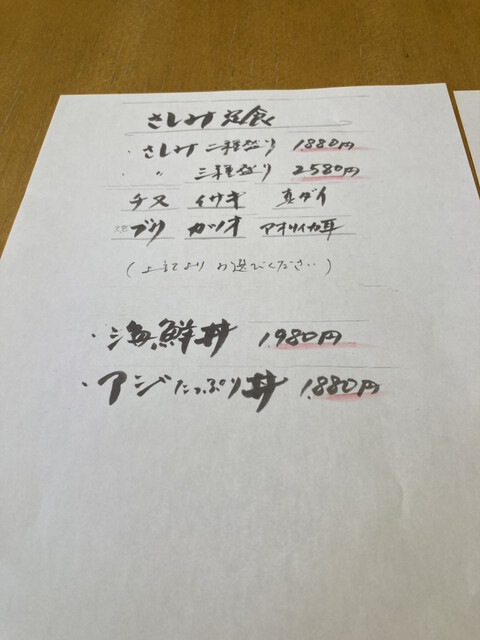 さしみ定食
・さしみ 二種盛り 1.880円
・ 〃 三種盛り 2580円
チヌ イサキ 真ダイ
ブリ カツオ アオリイカ耳
(上記より お選びください)
・海鮮丼 1.980円
・アジたっぷり丼 1.880円